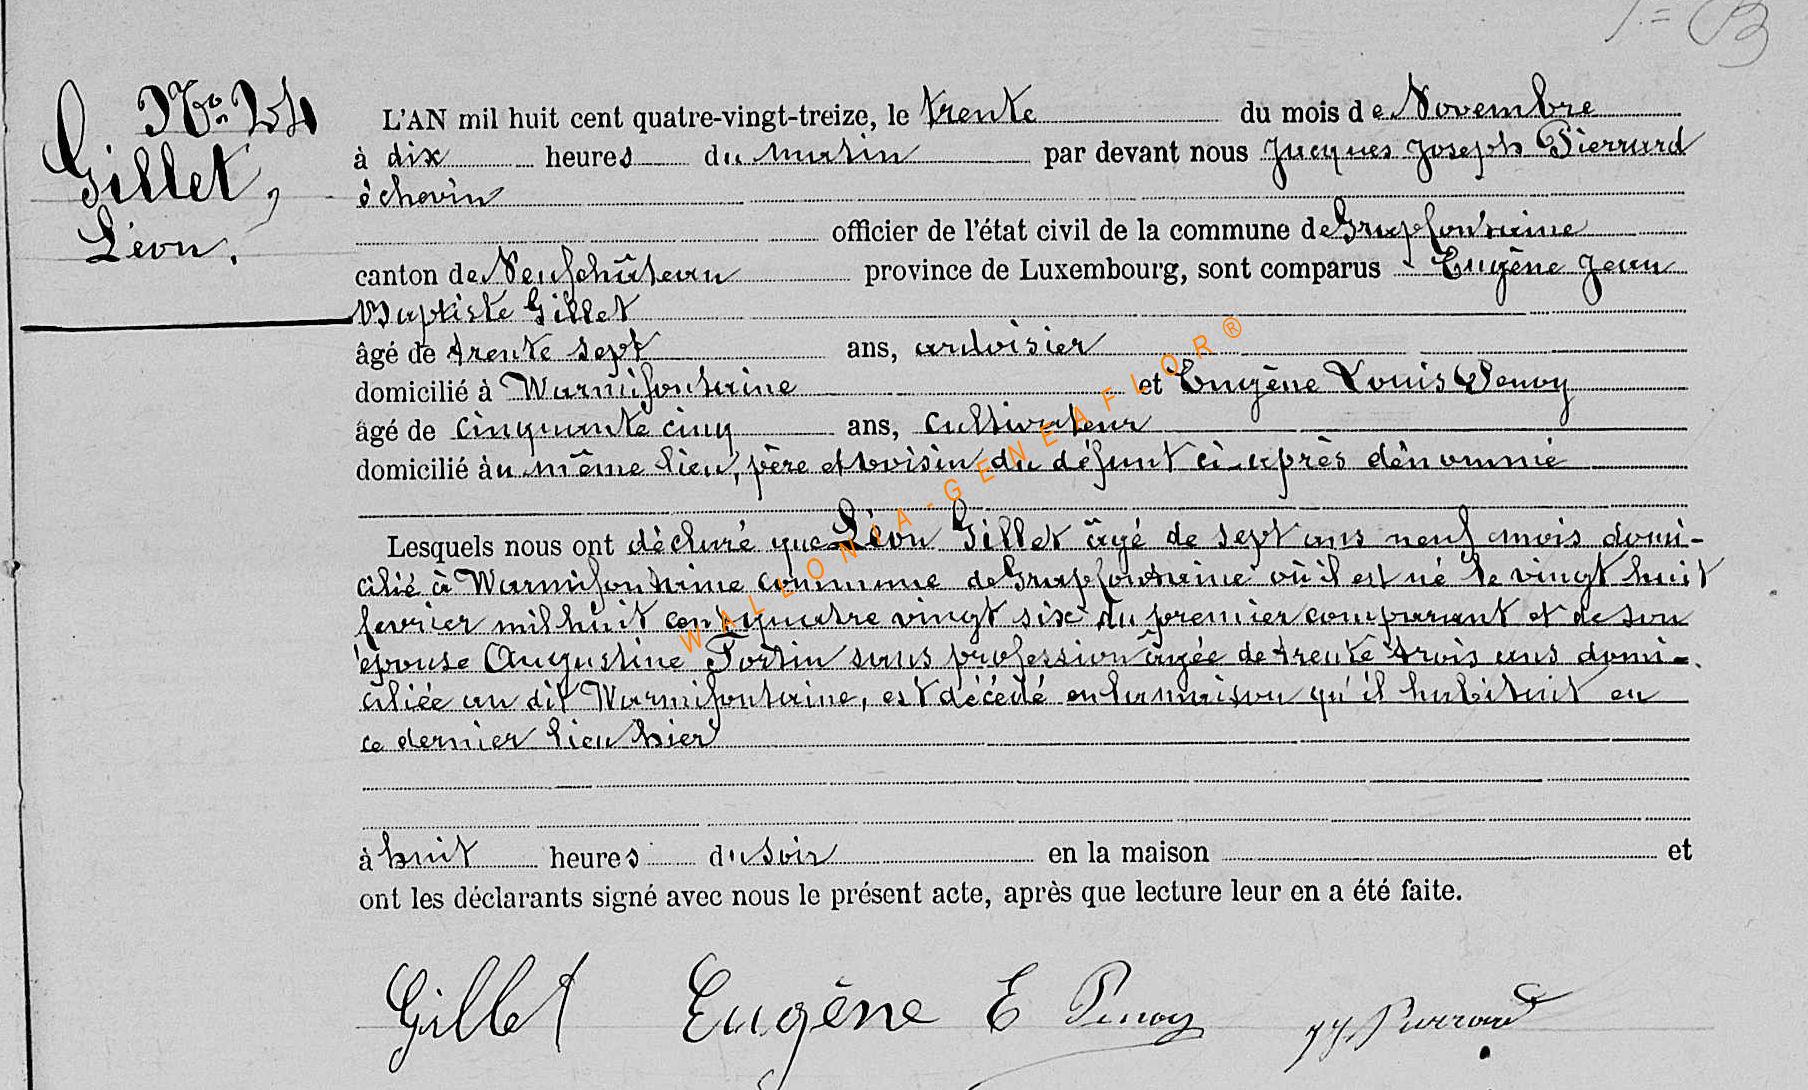 N° 24
Gillet,
Léon.
L'AN mil huit cent quatre-vingt-treize, le trente du mois de Novembre
à dix heures du matin par devant nous Jacques Joseph Pierrard
échevin
officier de l'état civil de la commune de Grapfontaine
canton de Neufchâteau province de Luxembourg, sont comparus Eugène Jean
Baptiste Gillet
âgé de trente sept ans, ardoisier
domicilié à Warmifontaine et Eugène Louis Penoy
âgé de cinquante cinq ans, cultivateur
domicilié au même lieu, père et voisin du défunt ci-après dénommé
Lesquels nous ont déclaré que Léon Gillet âgé de sept ans neuf mois domi-
cilié à Warmifontaine commune de Grapfontaine où il est né le vingt huit
fevrier mil huit cent quatre vingt six du premier comparant et de son
épouse Augustine Fortin sans profession âgée de trente trois ans domi-
ciliée au dit Warmifontaine, est décédé en la maison qu'il habitait en
ce dernier lieu hier
à huit heures du soir en la maison et
ont les déclarants signé avec nous le présent acte, après que lecture leur en a été faite.
Gillet Eugène E Penoy JJ. Pierrard
WALLONIA-GENEAFLOR®